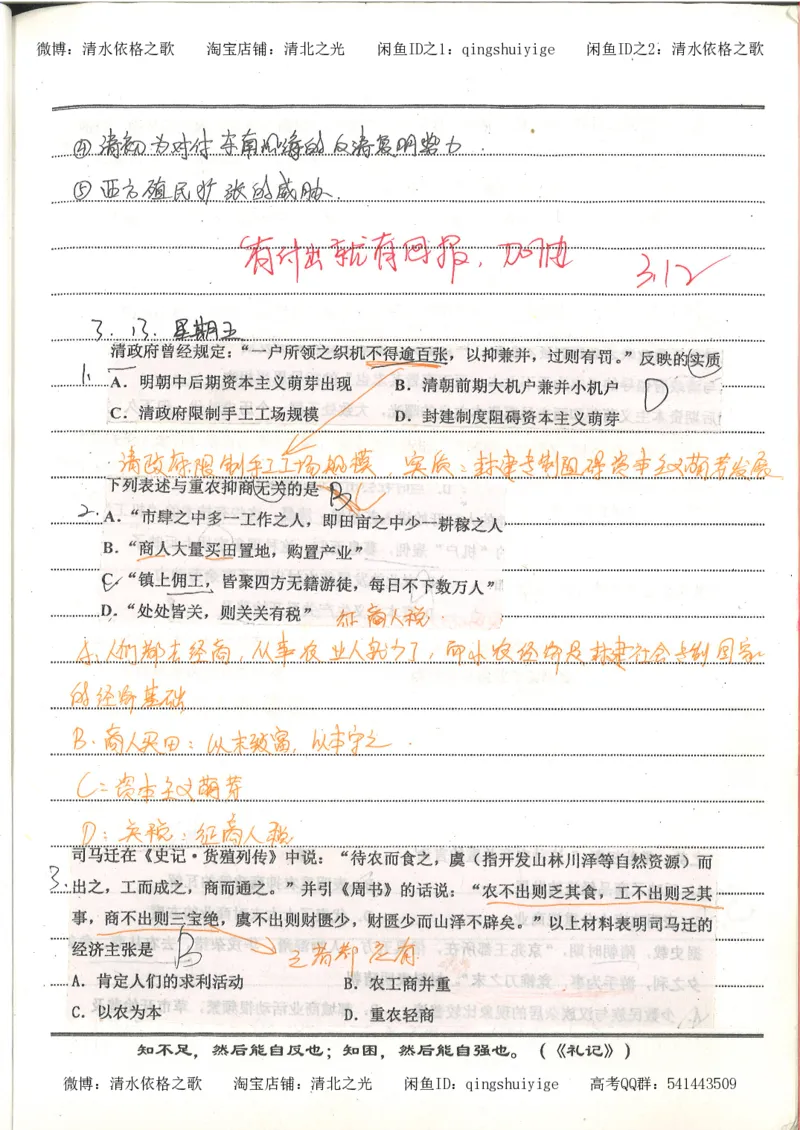 微博：清水依格之歌 淘宝店铺：清北之光 闲鱼ID之1：qingshuiyige 闲鱼ID之2：清水依格之歌
④ 清初为对付东南沿海的反清复明势力.
⑤ 西方殖民扩张的威胁.
有付出就有回报，加油 3.12
3.13. 星期五
1. 清政府曾经规定：“一户所领之织机不得逾百张，以抑兼并，过则有罚。”反映的实质
A. 明朝中后期资本主义萌芽出现 B. 清朝前期大机户兼并小机户 D
C. 清政府限制手工工场规模 D. 封建制度阻碍资本主义萌芽
清政府限制手工工场规模 实质：封建专制阻碍资本主义萌芽发展
2. 下列表述与重农抑商无关的是 B C
A. “市肆之中多一工作之人，即田亩之中少一耕稼之人
B. “商人大量买田置地，购置产业”
C. “镇上佣工，皆聚四方无籍游徒，每日不下数万人”
D. “处处皆关，则关关有税” 征商人税
A. 人们都去经商，从事农业人就少了，而小农经济是封建社会专制国家
的经济基础
B. 商人买田：以末致富，以本守之.
C：资本主义萌芽
D：关税：征商人税
3. 司马迁在《史记·货殖列传》中说：“待农而食之，虞（指开发山林川泽等自然资源）而
出之，工而成之，商而通之。”并引《周书》的话说：“农不出则乏其食，工不出则乏其
事，商不出则三宝绝，虞不出则财匮少，财匮少而山泽不辟矣。”以上材料表明司马迁的
经济主张是 B 三者都应有
A. 肯定人们的求利活动 B. 农工商并重
C. 以农为本 D. 重农轻商
知不足，然后能自反也；知困，然后能自强也。（《礼记》）
微博：清水依格之歌 淘宝店铺：清北之光 闲鱼ID：qingshuiyige 高考QQ群：541443509